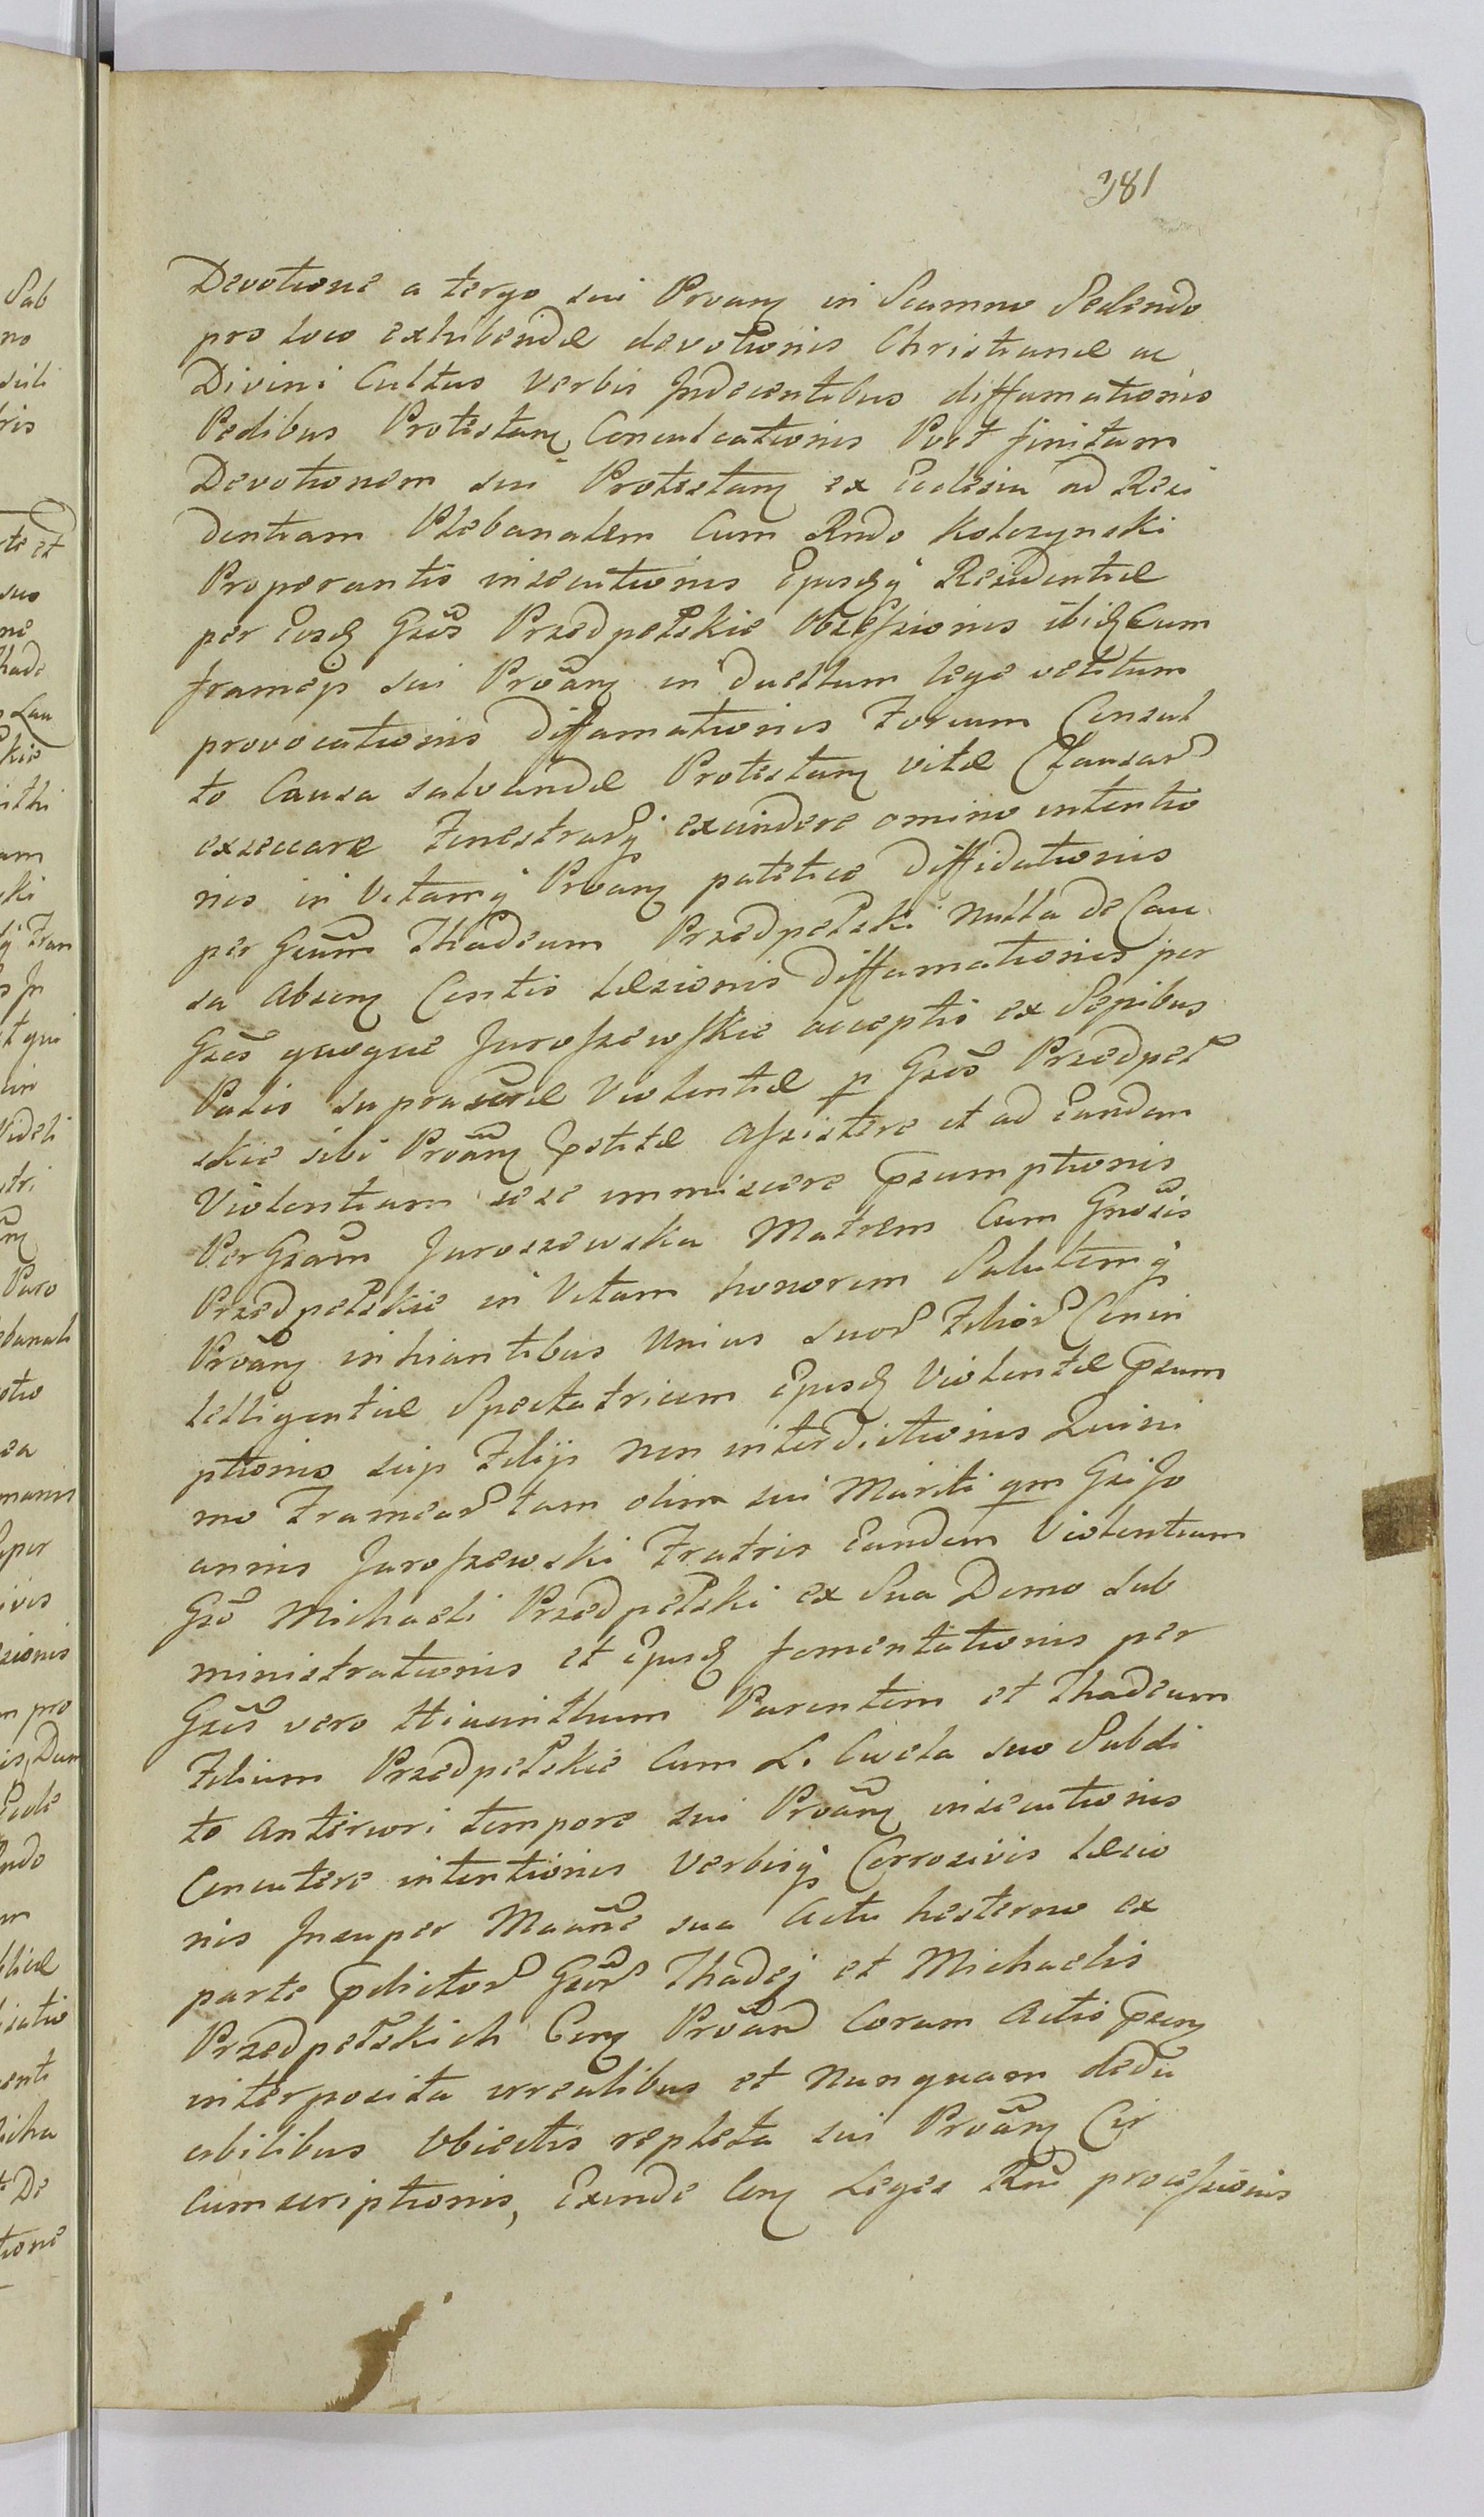 381
Devotione a tergo sui Proŭanꝫ in Scamno Sedendo
pro loco exhibendæ devotionis Christianæ ac
Divini Cultus verbis Indecentibus diffamationis
Pedibus Protestanꝫ Conculcationis Post finitam
Devotionem sui Protestanꝫ ex Ecclesia ad Resi
dentiam Plebanalem Cum Rndo Kolczynski
Properantis insecutionis Ejusdꝫ Residentiæ
per Eosdꝫ Gsos Przedpełskie Obsessionis ibidꝫ Cum
frameis sui Proanꝫ in duellum lege vetitum
provocationis Diffamationis Forium Consul
to Causa salvandæ Protestanꝫ vitæ Clausar
exsecare Fenestrasqꝫ excindere omino intentio
nis in Vitamqꝫ Proanꝫ patetice Diffidationis
per Gsum Thadeum Przedpełski Nulla de Cau
sa Absenꝫ Contis læsionis Diffamationis per
Gsos quoque Jaroszewskie acceptis ex Sepibus
Palis suprascræ Violentiæ p Gsos Przedpeł
skie sibi Proanꝫ Pstitæ Assistere et ad Eandem
Violentiam sese immiscere Psumptionis
Per Gsam Jaroszewska Matrem Cum Gnosis
Przedpełskie in Vitam honorem Salutemqꝫ
Proanꝫ inhiantibus Unius suor Filior Conin
telligentiæ Spectatricem Ejusdꝫ Violentiæ Psum
ptionis suis Filijs Non interdictionis Quini
mo Framear tam olim sui Mariti qm Gsi Jo
annis Jaroszewski Fratris Eandem Violentiam
Gso Michaeli Przedpełski ex Sua Domo Sub
ministrationis et Ejusdꝫ fomentationis per
Gsos vero Hiacinthum Parentem et Thadeum
Filium Przedpełskie Cum L. Cwela suo Subdi
to Anteriori tempore sui Proanꝫ insecutionis
Concutere intentionis Verbisqꝫ Corrosivis læsio
nis Insuper Maãne sua Actu hesterno ex
parte Pdictor Gsor Thadej et Michaelis
Przedpełskich Conꝫ Proand Coram Actis Psenꝫ
interposita irrealibus et Nunquam dedu
cibilibus Obiectis repleta sui Proanꝫ Cir
cumscriptionis, Exinde Conꝫ Leges Rni processionis